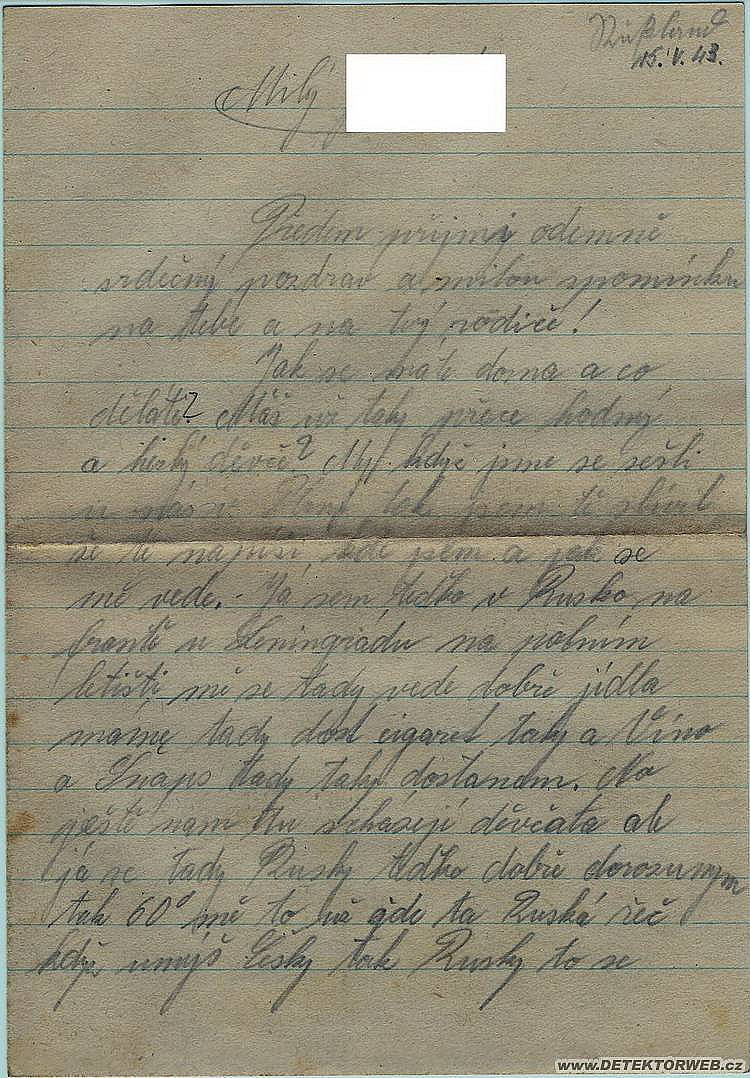 Rußland
15.V.43.
Milý
Předem přijmy odemně
srdečný pozdrav a milou spomínku
na tebe a na tvý rodiče!
Jak se máte doma a co
děláte? Máš už taky přece hodný
a hezký děvče? My když jsme se sešli
u nás v tak jsem ti slíbil
že ti napíši, kde jsem a jak se
mě vede. - Já sem teďko v Rusko na
frontě u Leningrádu na polním
letišti, mě se tady vede dobře jídla
máme tady dost cigaret taky a Víno
a Šnaps tady taky dostanem. No
ještě nam tu scházejí děvčata ale
já se tady Rusky teďko dobře dorozumym
tak 60% mě to už gde ta Ruská řeč
když umýš Česky tak Rusky to se
WWW.DETEKTORWEB.CZ